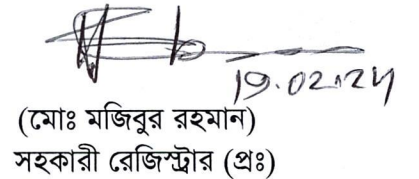 19.02.24
(মোঃ মজিবুর রহমান)
সহকারী রেজিস্ট্রার (প্রঃ)